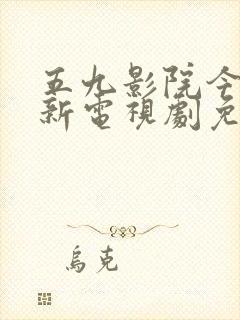 五九影院今
新電視劇免
烏克